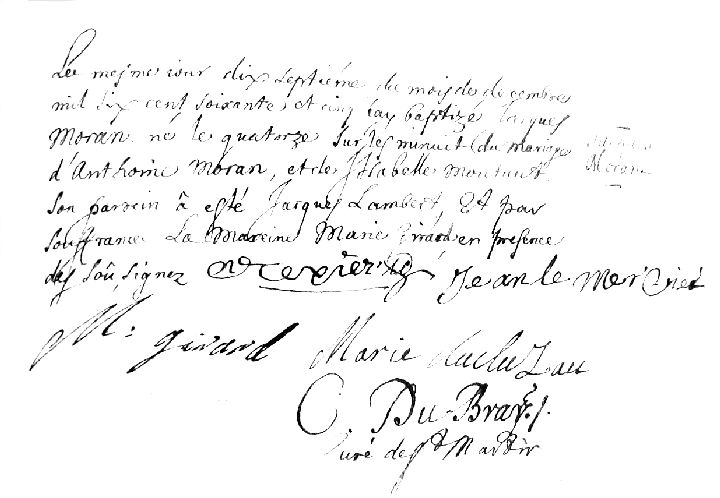 Lee mesme iour dix septiéme du mois de decembre
mil six cent soixante et cinq Iay baptizé Iacques
Moran né le quatorze sur les minuit du mariage
d'Anthoine Moran, et de Isabelle Montuit
Jacques
Moran
Son parrein â esté Jacques Lambert, Et par
souffrance La Mareine Marie Girard en presence
des soû signez Texier Jean le Mercier
M: girard Marie ducluzau
C DuBray
Curé de St Martin